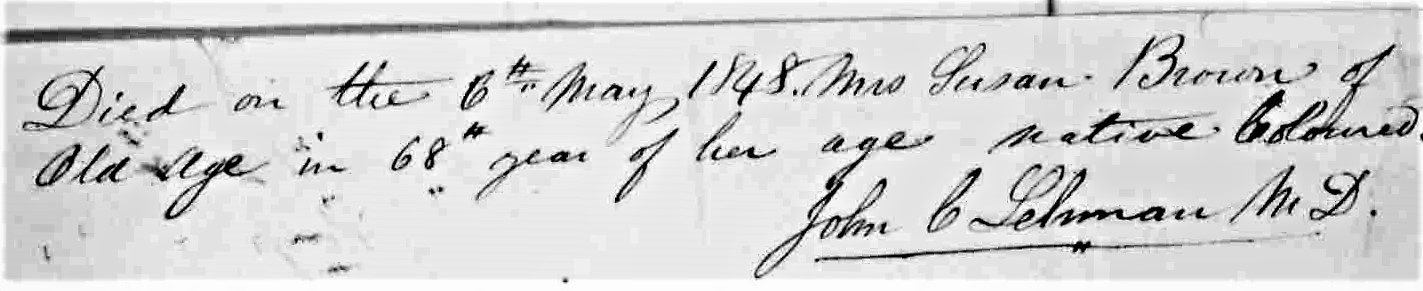 Died on the 6th May 1848. Mrs Susan Brown of
Old Age in 68th year of her age native Coloured.
John C Lehman M.D.